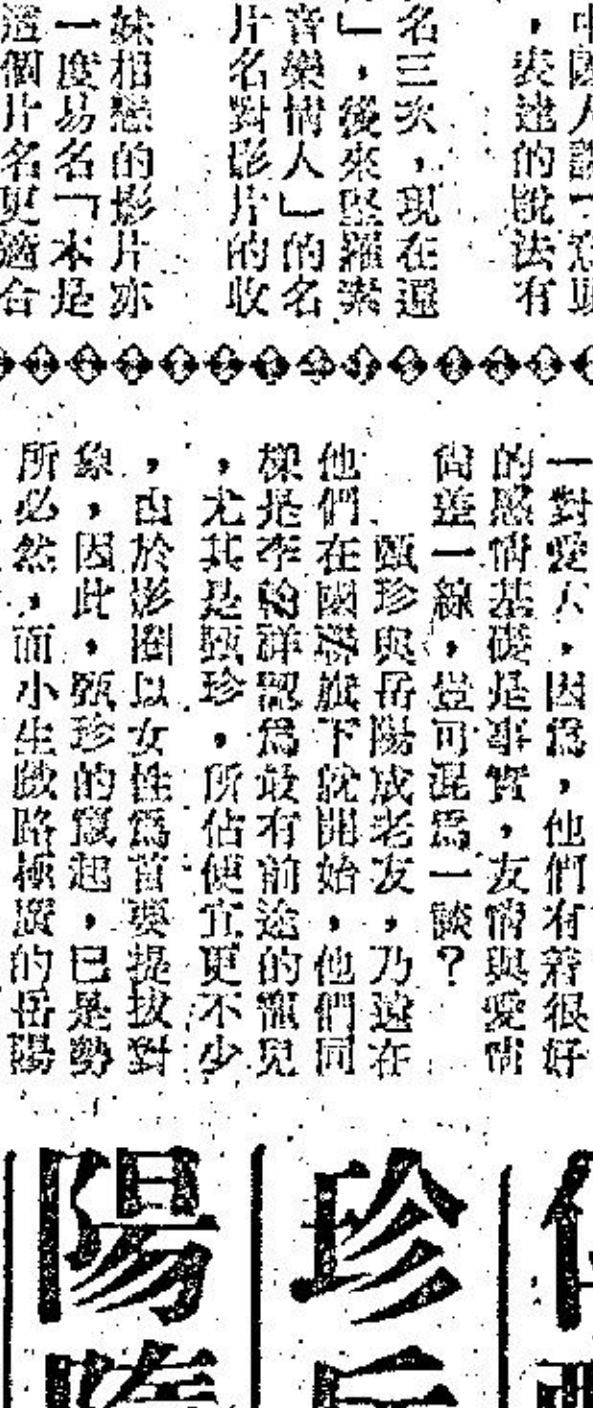 中國人說「意
，表達的說法有
名三次，現在這
」，後來堅羅素
音樂情人」的名
片名對影片的收
妹相戀的影片亦
一度易名「本是
這個片名更適合
一對愛人，因爲，他們有着很好
的感情基礎是事實，友情與愛情
尙差一線，豈可混爲一談？
甄珍與岳陽成老友，乃遠在
他們在國聯旗下就開始，他們同
樣是李翰祥認爲最有前途的寵兒
，尤其是甄珍，所佔便宜更不少
，由於影圈以女性爲首要提拔對
象，因此，甄珍的竄起，已是勢
所必然，而小生戲路極廣的岳陽
珍
陽